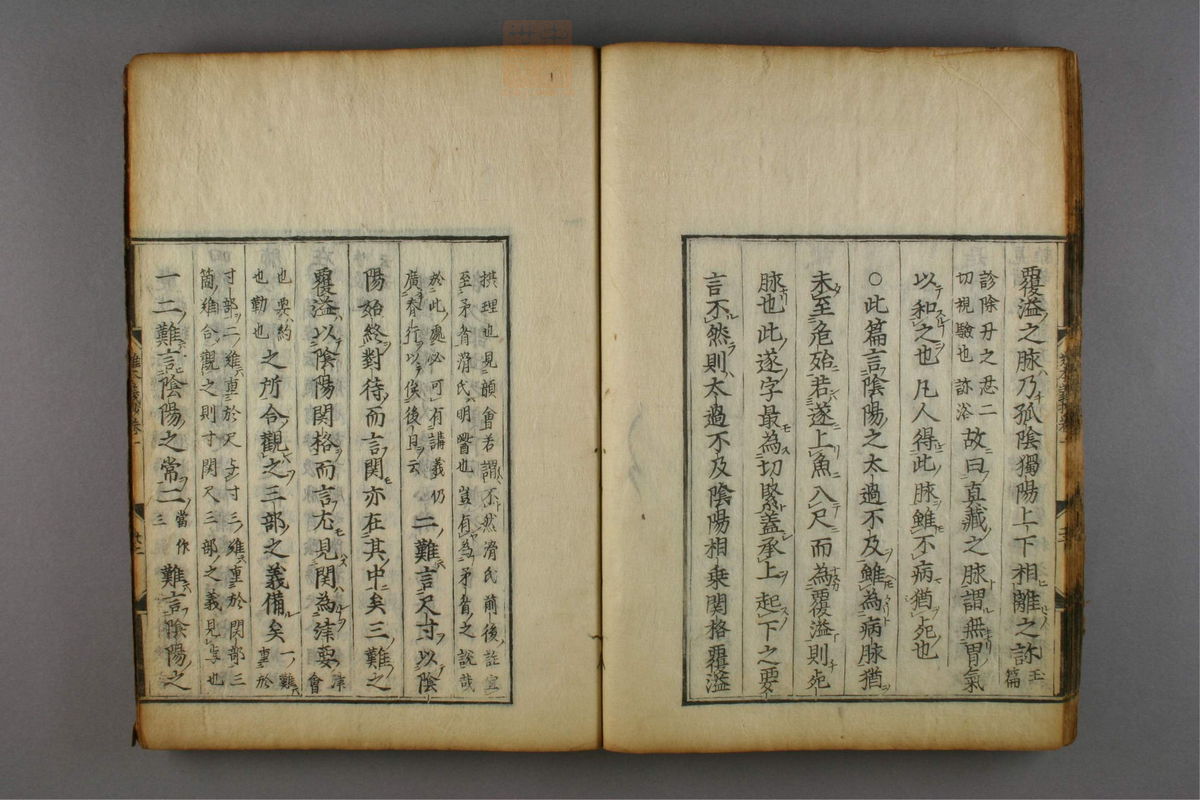 覆溢之脉乃孤陰獨陽上下相離之訴玉篇
診除丹之忍二
切視驗也 訴浴
故曰直藏之脉謂無胃氣
以和之也凡人得此脉雖不病猶死也
○此篇言陰陽之太過不及雖為病脉猶
未至危殆若遂上魚入尺而為覆溢則死
脉也此遂字最為切緊盖承上起下之要
言不然則太過不及陰陽相乗関格覆溢
撰理也見韻會若謂不然滑氏前後註
至矛盾滑氏明醫也豈有為矛盾之説哉
於此處必可有講義仍
廣脊行以俟後日云
二難言尺寸以陰
陽始終對待而言関亦在其中矣三難之
覆溢以陰陽関格而言尤見関為津要津會
也要約
也勤也
之所合觀之三部之義備矣一難重於
寸部二難重於尺与寸三難重於関部三
箇難合觀之則寸関尺三部之義見也
一二難言陰陽之常二當作三難言陰陽之